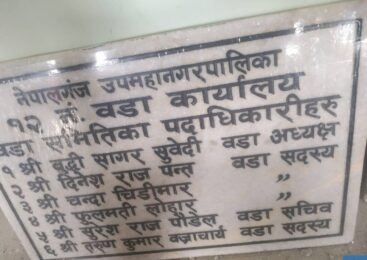 नेपालगंज उपमहानगरपालिका
१२ नं. वडा कार्यालय
वडा समितिका पदाधिकारीहरु
१ श्री बुद्धी सागर सुवेदी वडा अध्यक्ष
२ श्री दिनेश राज पन्त वडा सदस्य
३ श्री चन्दा चिडीमार ,,
४ श्री फुलमती लोहार ,,
५ श्री सुरेश राज पौडेल वडा सचिव
६ श्री तरुण कुमार बज्राचार्य वडा सदस्य